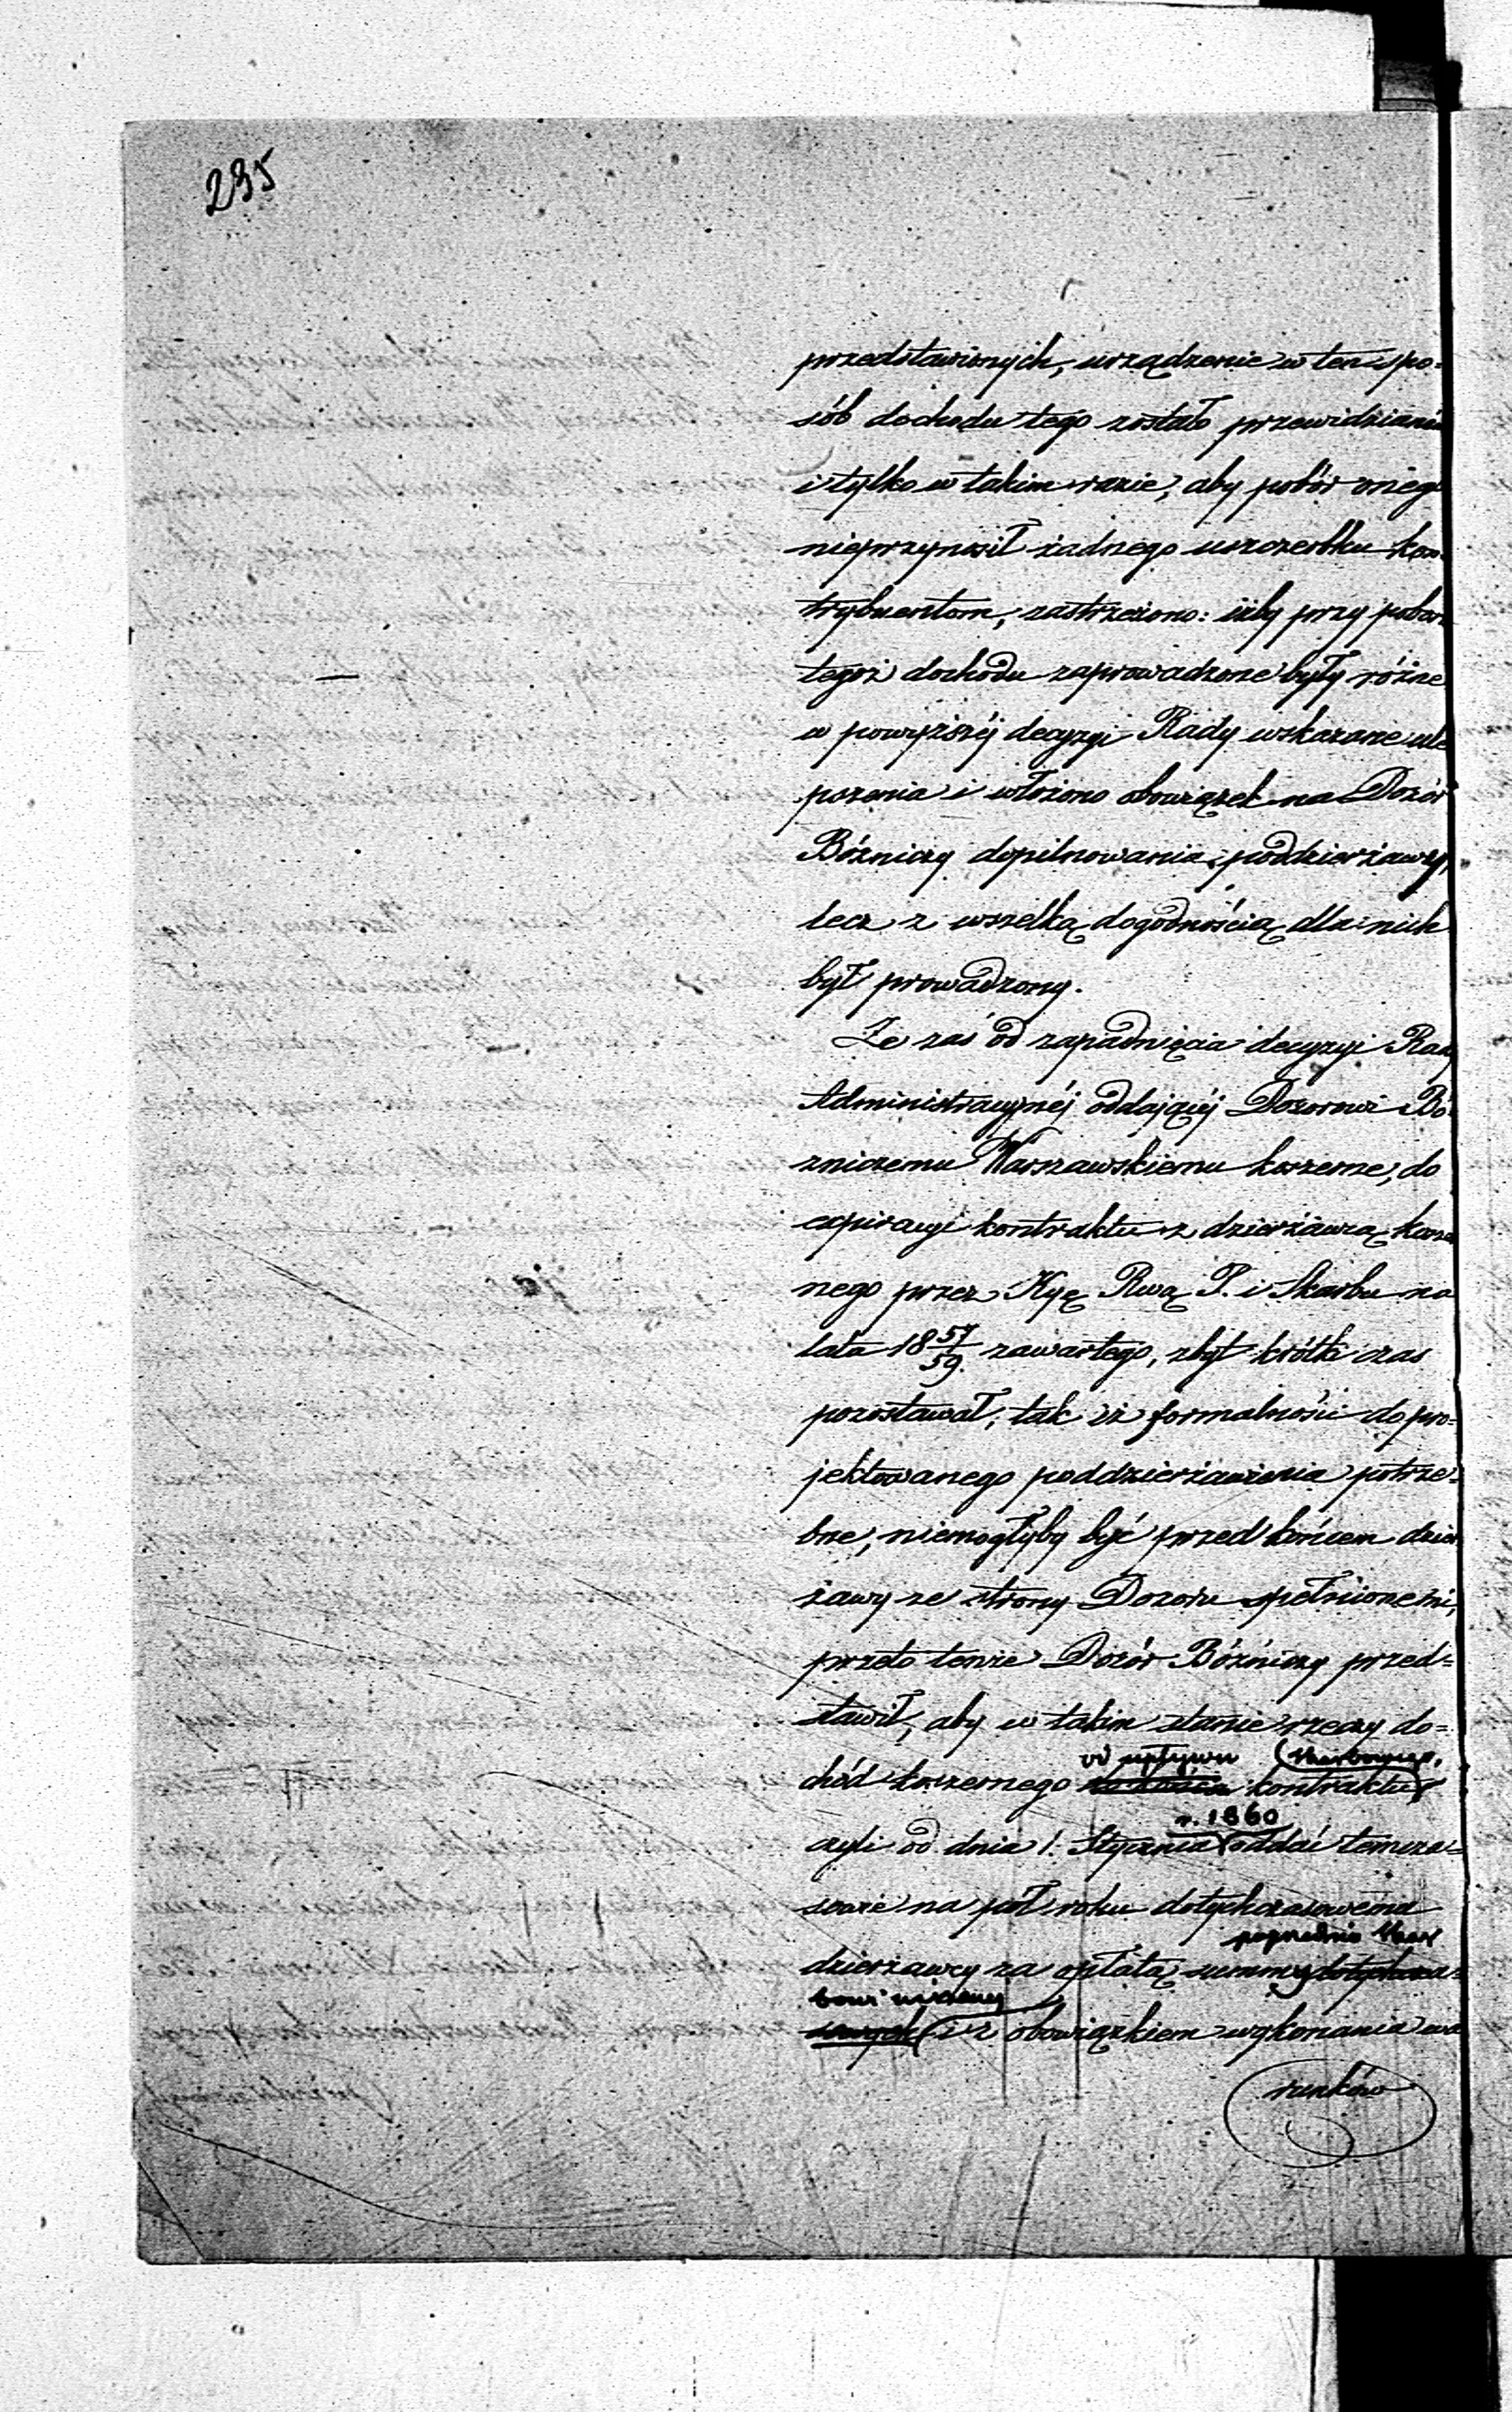 235
przedstawionych, urządzenie w ten spo=
sób dochodu tego zostało przewidziane
i tylko w takim razie, aby pobór oneg
nieprzynosił żadnego uszczerbku kon
trybuentom, zastrzeżono: iżby przy pobor
tegoż dochodu zaprowadzone były różne
w powyższéj decyzyi Rady wskazane ule
pszenia i włożono obowiązek na Dozór
Bózniczy dopilnowania, poddzierżawy,
lecz z wszelką dogodnością dla nich
był prowadzony.
Że zaś od zapadnięcia decyzyi Rady
Administracyjnéj oddającéj Dozorowi Bó
zniczemu Warszawskiemu koszerne, do
expiracyi kontraktu z dzierżawcą kosze
nego przez Kyą Rwą P. i Skarbu na
lata 18 57/59. zawartego, zbyt krótki czas
pozostawał, tak iż formalności do pro=
jektowanego poddzierżawienia potrze=
bne, niemogłyby być przed końcem dzier
żawy ze strony Dozoru spełnionemi,
przeto tenże Dozór Bózniczy przed=
stawił, aby w takim stanie rzeczy do=
od upływu
chód koszernego kontraktu
r. 1860
czyli od dnia 1. Stycznia oddać temcza=
sowie na pół roku dotychczasowemu
poprzednio Skar
dzierżawcy za opłatą summy dotychcza=
bowi
sowych i z obowiązkiem wykonania wa
runków